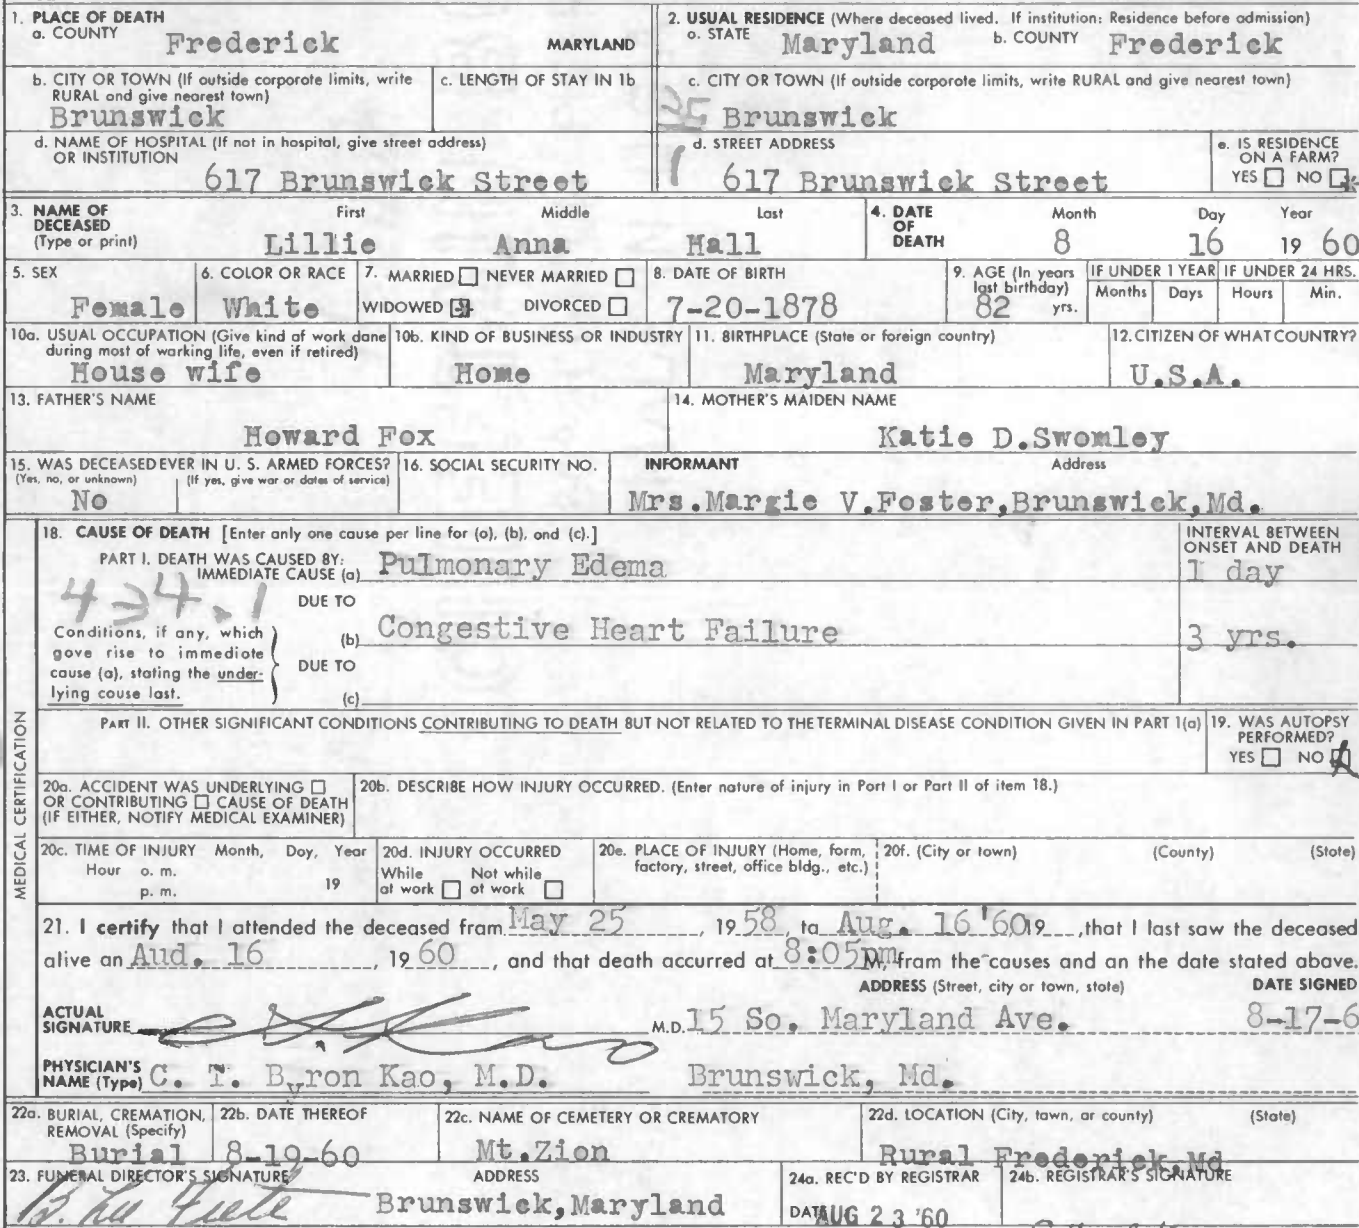 1. PLACE OF DEATH
a. COUNTY Frederick MARYLAND
2. USUAL RESIDENCE (Where deceased lived. If institution: Residence before admission)
a. STATE Maryland b. COUNTY Frederick
b. CITY OR TOWN (If outside corporate limits, write RURAL and give nearest town)
Brunswick
c. LENGTH OF STAY IN 1b
c. CITY OR TOWN (If outside corporate limits, write RURAL and give nearest town)
Brunswick
d. NAME OF HOSPITAL (If not in hospital, give street address)
OR INSTITUTION
617 Brunswick Street
d. STREET ADDRESS
617 Brunswick Street
e. IS RESIDENCE ON A FARM?
YES NO
3. NAME OF DECEASED (Type or print)
First Middle Last
Lillie Anna Hall
4. DATE OF DEATH
Month Day Year
8 16 19 60
5. SEX
Female
6. COLOR OR RACE
White
7. MARRIED NEVER MARRIED
WIDOWED DIVORCED
8. DATE OF BIRTH
7-20-1878
9. AGE (In years last birthday)
82 yrs.
IF UNDER 1 YEAR
Months Days
IF UNDER 24 HRS.
Hours Min.
10a. USUAL OCCUPATION (Give kind of work done during most of working life, even if retired)
House wife
10b. KIND OF BUSINESS OR INDUSTRY
Home
11. BIRTHPLACE (State or foreign country)
Maryland
12. CITIZEN OF WHAT COUNTRY?
U.S.A.
13. FATHER'S NAME
Howard Fox
14. MOTHER'S MAIDEN NAME
Katie D.Swomley
15. WAS DECEASED EVER IN U. S. ARMED FORCES?
(Yes, no, or unknown) (If yes, give war or dates of service)
No
16. SOCIAL SECURITY NO.
INFORMANT Address
Mrs.Margie V.Foster,Brunswick,Md.
MEDICAL CERTIFICATION
18. CAUSE OF DEATH [Enter only one cause per line for (a), (b), and (c).]
INTERVAL BETWEEN ONSET AND DEATH
PART I. DEATH WAS CAUSED BY:
IMMEDIATE CAUSE (a) Pulmonary Edema 1 day
434.1
DUE TO
(b) Congestive Heart Failure 3 yrs.
Conditions, if any, which gave rise to immediate cause (a), stating the underlying cause last.
DUE TO
(c)
PART II. OTHER SIGNIFICANT CONDITIONS CONTRIBUTING TO DEATH BUT NOT RELATED TO THE TERMINAL DISEASE CONDITION GIVEN IN PART 1(a)
19. WAS AUTOPSY PERFORMED?
YES NO
20a. ACCIDENT WAS UNDERLYING
OR CONTRIBUTING CAUSE OF DEATH
(IF EITHER, NOTIFY MEDICAL EXAMINER)
20b. DESCRIBE HOW INJURY OCCURRED. (Enter nature of injury in Part I or Part II of item 18.)
20c. TIME OF INJURY Month, Day, Year
Hour a. m.
p. m. 19
20d. INJURY OCCURRED
While at work Not while at work
20e. PLACE OF INJURY (Home, form, factory, street, office bldg., etc.)
20f. (City or town) (County) (State)
21. I certify that I attended the deceased from May 25, 19 58, to Aug. 16 '60 19, that I last saw the deceased
alive on Aud. 16, 19 60, and that death occurred at 8:05pm M, from the causes and on the date stated above.
ADDRESS (Street, city or town, state) DATE SIGNED
ACTUAL SIGNATURE M.D. 15 So. Maryland Ave. 8-17-6
PHYSICIAN'S NAME (Type) C. T. Byron Kao, M.D. Brunswick, Md.
22a. BURIAL, CREMATION, REMOVAL (Specify)
Burial
22b. DATE THEREOF
8-19-60
22c. NAME OF CEMETERY OR CREMATORY
Mt.Zion
22d. LOCATION (City, town, or county) (State)
Rural Frederick,Md
23. FUNERAL DIRECTOR'S SIGNATURE ADDRESS
Brunswick,Maryland
24a. REC'D BY REGISTRAR
DATE AUG 23 '60
24b. REGISTRAR'S SIGNATURE